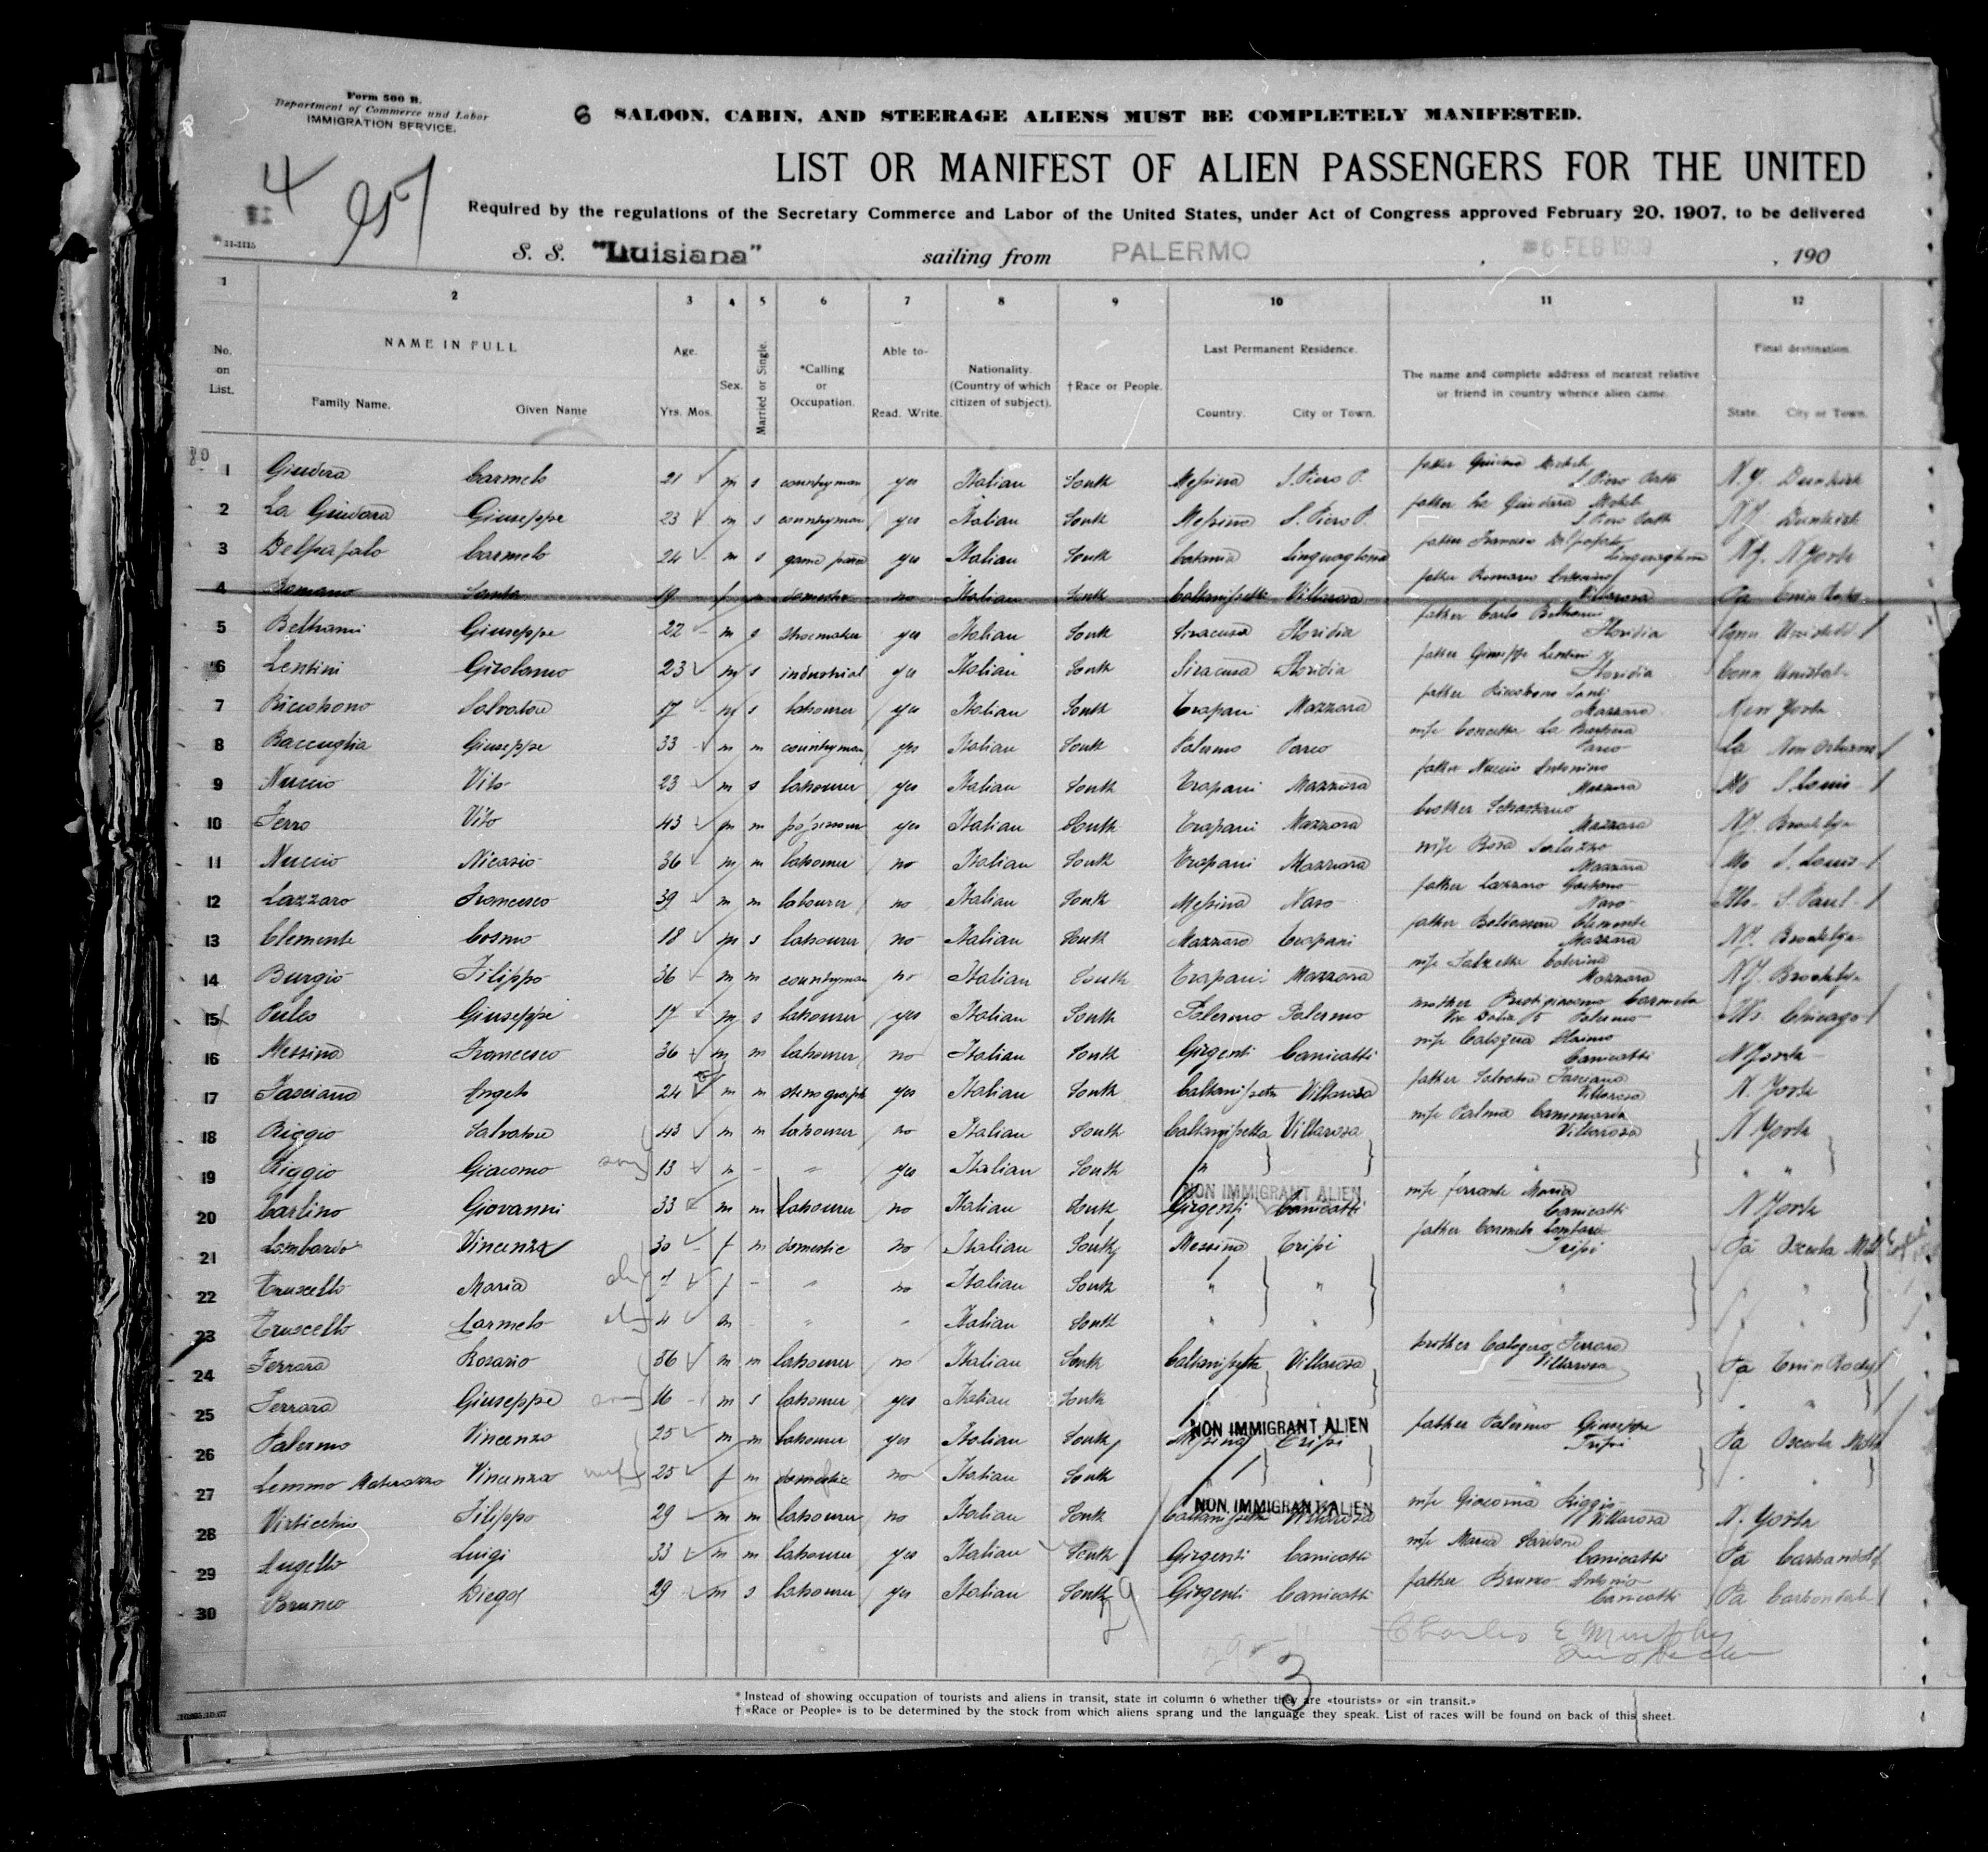 Form 500 B.
Department of Commerce and Labor
IMMIGRATION SERVICE.
6 SALOON, CABIN, AND STEERAGE ALIENS MUST BE COMPLETELY MANIFESTED.
4
LIST OR MANIFEST OF ALIEN PASSENGERS FOR THE UNITED
Required by the regulations of the Secretary Commerce and Labor of the United States, under Act of Congress approved February 20, 1907, to be delivered
S. S. "Luisiana" sailing from PALERMO , 6 FEB 1909 , 190
1 2 3 4 5 6 7 8 9 10 11 12
No. on List. NAME IN FULL Family Name. Given Name Age. Yrs. Mos. Sex. Married or Single. *Calling or Occupation. Able to- Read. Write. Nationality. (Country of which citizen of subject). †Race or People. Last Permanent Residence. Country. City or Town. The name and complete address of nearest relative or friend in country whence alien came. Final destination. State. City or Town.
1 Carmelo 21 m s countryman yes Italian South Messina S. Piero P. father S. Piero Patti N.Y. Dunkirk
2 La Giudara Giuseppe 23 m s countryman yes Italian South Messina S. Piero P. father La Giudara Michele S. Piero Patti N.Y. Dunkirk
3 Delpopolo Carmelo 24 m s yes Italian South Catania Linguaglossa father Francesco Delpopolo Linguaglossa N.Y. N York
4 Romano Santa 19 f domestic no Italian South Caltanissetta Villarosa father Romano Antonino Villarosa Pa
5 Beltrami Giuseppe 22 m s shoemaker yes Italian South Siracusa Floridia father Carlo Beltrami Floridia
6 Lentini Girolamo 23 m s industrial yes Italian South Siracusa Floridia father Giuseppe Lentini Floridia Conn
7 Riccobono Salvatore 17 m s labourer yes Italian South Trapani Mazzara father Riccobono Mazzara New York
8 Baccuglia Giuseppe 33 m m countryman yes Italian South Palermo Parco wife Concetta La Barbera Parco La New Orleans
9 Nuccio Vito 23 m s labourer yes Italian South Trapani Mazzara father Nuccio Antonino Mazzara Mo S. Louis
10 Ferro Vito 43 m m yes Italian South Trapani Mazzara brother Mazzara N.Y. Brooklyn
11 Nuccio Nicasio 36 m m labourer no Italian South Trapani Mazzara wife Rosa Mazzara Mo S. Louis
12 Lazzaro Francesco 39 m m labourer no Italian South Messina Naso father Lazzaro Gaetano Naso S. Paul
13 Clemente Cosmo 18 m s labourer no Italian South Mazzara Trapani father Baldassare Clemente Mazzara N.Y. Brooklyn
14 Burgio Filippo 36 m m countryman no Italian South Trapani Mazzara wife Caterina Mazzara N.Y. Brooklyn
15 Puleo Giuseppe 17 m s labourer yes Italian South Palermo Palermo mother Carmela Palermo Ills. Chicago
16 Messina Francesco 36 m m labourer no Italian South Girgenti Canicatti wife Calogera Canicatti N York
17 Fasciana Angelo 24 m m yes Italian South Caltanissetta Villarosa father Salvatore Fasciana Villarosa N. York
18 Riggio Salvatore 43 m m labourer no Italian South Caltanissetta Villarosa wife Palma Cammarata Villarosa N. York
19 Riggio Giacomo son 13 m - " yes Italian South " " " "
20 Carlino Giovanni 33 m m labourer no Italian South NON IMMIGRANT ALIEN Girgenti Canicatti wife Ferrante Maria Canicatti N York
21 Lombardo Vincenza 30 f m domestic no Italian South Messina Tripi father Carmelo Lombardo Tripi Pa Osceola Mills
22 Truscello Maria 7 f - " no Italian South " " " " "
23 Truscello Carmelo 4 m " " Italian South " " " "
24 Ferrara Rosario 56 m m labourer no Italian South Caltanissetta Villarosa brother Calogero Ferrara Villarosa Pa
25 Ferrara Giuseppe son 16 m s labourer yes Italian South
26 Palermo Vincenzo 25 m m labourer yes Italian South NON IMMIGRANT ALIEN Messina Tripi father Palermo Giuseppe Tripi Pa Osceola Mills
27 Lemmo Vincenza wife 25 f m domestic no Italian South " " " "
28 Virticchio Filippo 29 m m labourer no Italian South NON IMMIGRANT ALIEN Caltanissetta Villarosa wife Giacoma Riggio Villarosa N. York
29 Augello Luigi 33 m m labourer yes Italian South Girgenti Canicatti wife Maria Canicatti Pa Carbondale
30 Brunco Diego 29 m s labourer yes Italian South Girgenti Canicatti father Brunco Antonio Canicatti Pa Carbondale
29
3
Charles E Murphy
* Instead of showing occupation of tourists and aliens in transit, state in column 6 whether they are «tourists» or «in transit.»
† «Race or People» is to be determined by the stock from which aliens sprang und the language they speak. List of races will be found on back of this sheet.